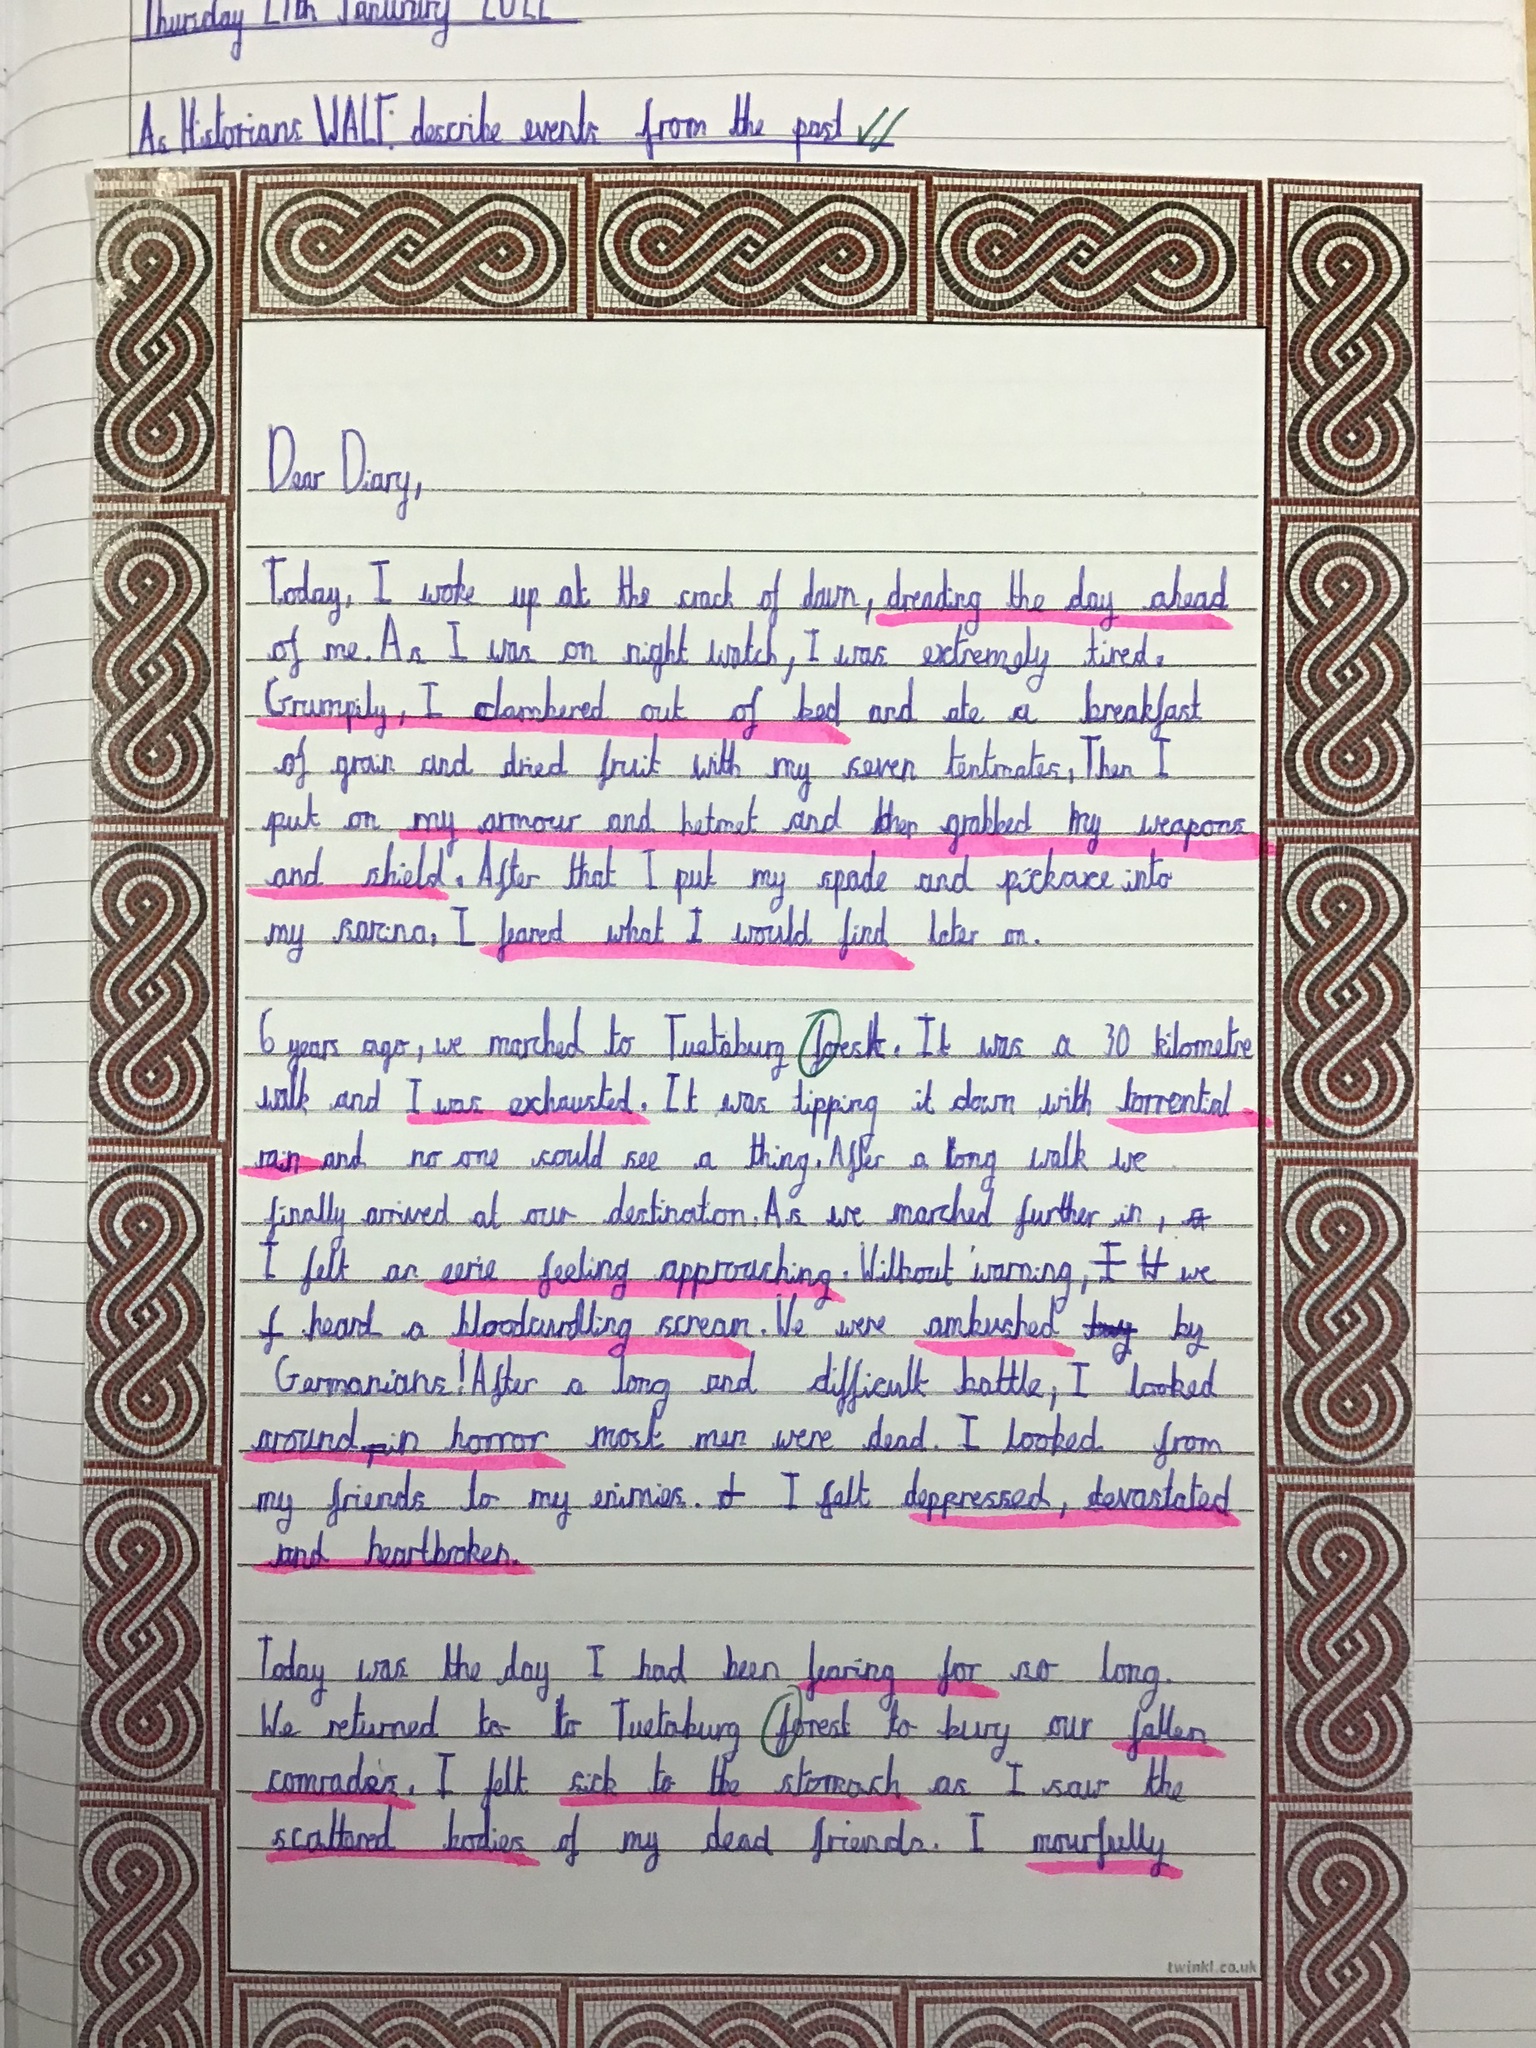 Thursday 27th January 2022
As Historians WALT: describe events from the past
Dear Diary,
Today, I woke up at the crack of dawn, dreading the day ahead
of me. As I was on night watch, I was extremely tired.
Grumpily, I clambered out of bed and ate a breakfast
of grain and dried fruit with my seven tentmates, Then I
put on my armour and helmet and then grabbed my weapons
and shield. After that I put my spade and pickaxe into
my sarina, I feared what I would find later on.
6 years ago, we marched to Tuetoburg forest. It was a 30 kilometre
walk and I was exhausted. It was tipping it down with torrential
rain and no one could see a thing. After a long walk we
finally arrived at our destination. As we marched further in,
I felt an eerie feeling approaching. Without warning, we
heard a bloodcurdling scream. We were ambushed by
Germanians! After a long and difficult battle, I looked
around in horror most men were dead. I looked from
my friends to my enimies. I felt deppressed, devastated
and heartbroken.
Today was the day I had been fearing for so long.
We returned to to Tuetoburg forest to bury our fallen
comrades. I felt sick to the stomach as I saw the
scattered bodies of my dead friends. I mourfully
twinkl.co.uk